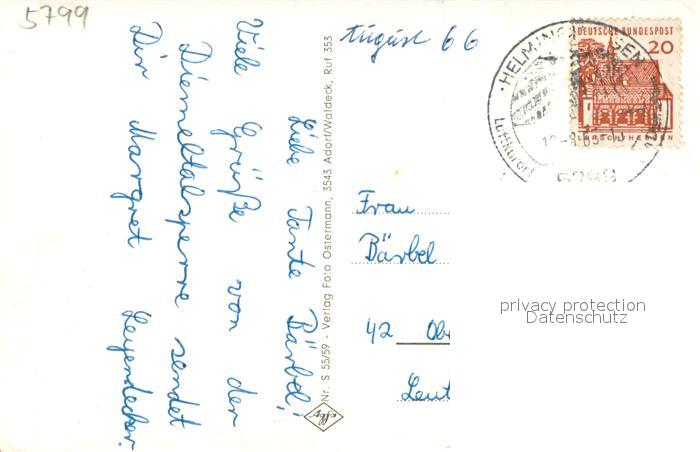 5799
August 66
Liebe Tante Bärbel!
Viele Grüße von der
Diemeltalsperre sendet
Dir Margret Leyendecker.
Nr. S 55/59 - Verlag Foto Ostermann, 3543 Adorf/Waldeck, Ruf 353
DEUTSCHE BUNDESPOST
20
LORSCH HESSEN
HELMINGHAUSEN
Luftkurort
5799
Frau
Bärbel
42 Obe
Leut
privacy protection
Datenschutz